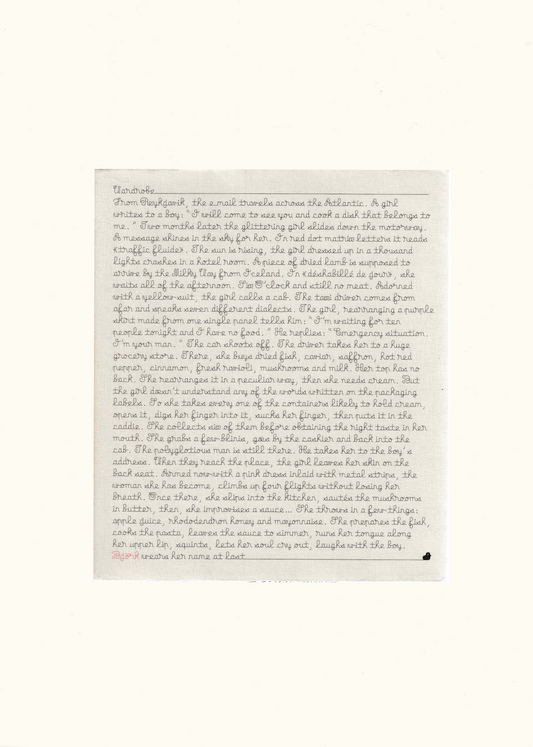 Wardrobe
From Reykjavik, the e.mail travels across the Atlantic. A girl
writes to a boy: "I will come to see you and cook a dish that belongs to
me." Two months later the glittering girl slides down the motorway.
A message shines in the sky for her. In red dot matrix letters it reads
«traffic fluide». The sun is rising, the girl dressed up in a thousand
lights crashes in a hotel room. A piece of dried lamb is supposed to
arrive by the Milky Way from Iceland. In «déshabillé de jour», she
waits all of the afternoon. Six O'clock and still no meat. Adorned
with a yellow-suit, the girl calls a cab. The taxi driver comes from
afar and speaks seven different dialects. The girl, rearranging a purple
skirt made from one single panel tells him: "I'm waiting for ten
people tonight and I have no food." He replies: "Emergency situation.
I'm your man." The car shoots off. The driver takes her to a huge
grocery store. There, she buys dried fish, caviar, saffron, hot red
pepper, cinnamon, fresh ravioli, mushrooms and milk. Her top has no
back. She rearranges it in a peculiar way, then she needs cream. But
the girl doesn't understand any of the words written on the packaging
labels. So she takes every one of the containers likely to hold cream,
opens it, digs her finger into it, sucks her finger, then puts it in the
caddie. She collects six of them before obtaining the right taste in her
mouth. She grabs a few blinis, goes by the cashier and back into the
cab. The polyglotious man is still there. He takes her to the boy's
address. When they reach the place, the girl leaves her skin on the
back seat. Armed now with a pink dress inlaid with metal strips, the
woman she has become, climbs up four flights without losing her
breath. Once there, she slips into the kitchen, sautés the mushrooms
in butter, then, she improvises a sauce... She throws in a few things:
apple juice, rhododendron honey and mayonnaise. She prepares the fish,
cooks the pasta, leaves the sauce to simmer, runs her tongue along
her upper lip, squints, lets her soul cry out, laughs with the boy.
Björk wears her name at last